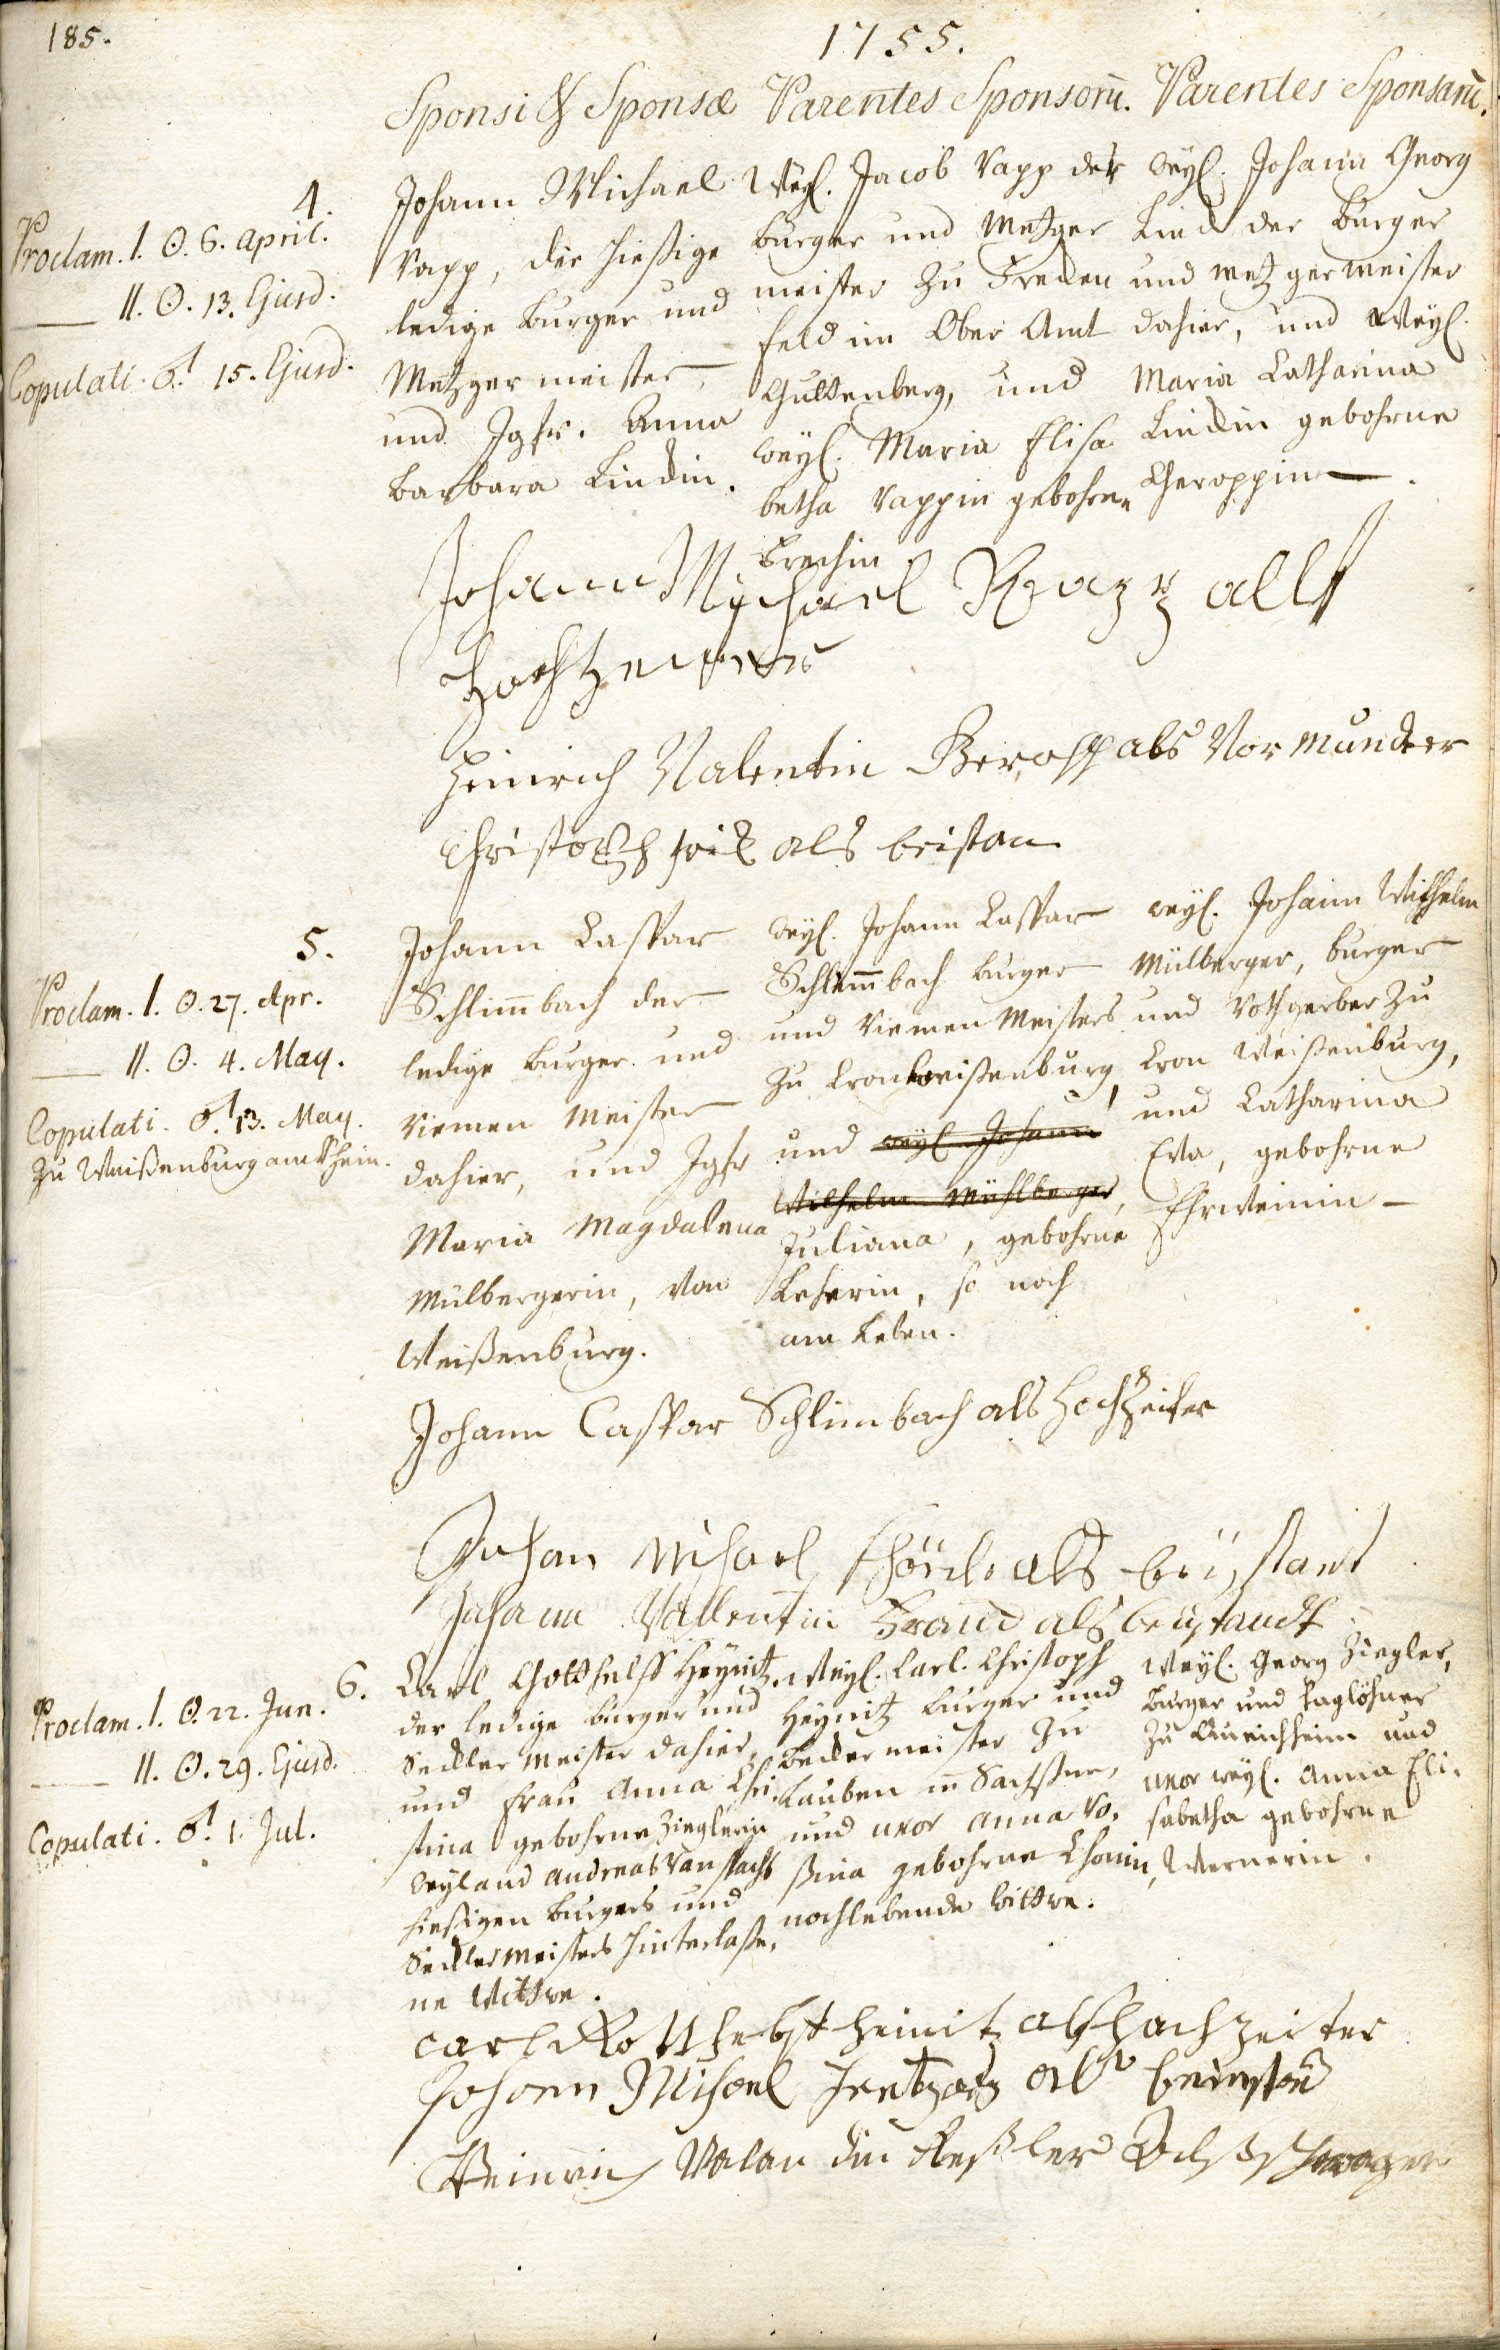 185.
1755.
Sponsi & Sponsæ Parentes Sponsorū. Parentes Sponsarū.
4.
Proclam. I. ☉. 6. April.
II. ☉. 13. Ejusd.
Copulati. ♂. 15. Ejusd.
Johann Michael
Rapp, der hießige
ledige burger und
Metzger meister,
und Jgfr. Anna
Barbara Lindin.
Weyl. Jacob Rapp der
burger und Metzger
meister zu Frecken
feld im Ober Amt
Guttenberg, und
weyl. Maria Elisa
betha Rappin gebohrne
Weyl. Johann Georg
Lind der burger
und metzgermeister
dahier, und Weyl.
Maria Catharina
Lindin gebohrne
Geroppin.
Johann Mychael Rapp alls
Hochzeitter
Heinrich Valentin als Vormunder
Christoph als beistan
5.
Proclam. I. ☉. 27. Apr.
II. ☉. 4. May.
Copulati. ♂. 13. May.
zu Weißenburg am Rhein.
Johann Caspar
Schlim̄bach der
ledige burger und
Riemen Meister
dahier, und Jgfr
Maria Magdalena
Mülbergerin, von
Weißenburg.
Weyl. Johann Caspar
Schlim̄bach burger
und Riemen Meisters
zu Cronweißenburg,
und weyl. Johann
Wilhelm Mühlberger,
Juliana, gebohrne
so noch
am Leben.
weyl. Johann Wilhelm
Mülberger, burger
und Rothgerber zu
Cron Weißenburg,
und Catharina
Eva, gebohrne
Ehrweinin
Johann Caspar Schlimbach als Hochzeiter
Johan Michael als beystant
Johann Vallentin Braud als beystandt
6.
Proclam. I. ☉. 22. Jun.
II. ☉. 29. Ejusd.
Copulati. ♂. 1. Jul.
Carl Gotthelff Heynitz,
der ledige burger und
Seckler Meister dahier,
und frau Anna Chri
stina gebohrne Zieglerin
Weyland Andreas
hießigen burgers und
Secklermeisters hinterlaße,
ne Wittwe.
Weyl. Carl Christoph
Heynitz burger und
Beckermeister zu
Lauben in Sachßen,
und uxor Anna Ro,
ßina gebohrne
nochlebende Wittwe.
Weyl. Georg Ziegler,
burger und Taglöhner
zu Queichheim und
uxor weyl. Anna Eli,
sabetha gebohrne
Wernerin.
carl heinitz als hochzeiter
Johann Michael als beystand
Heinrich Valan din Keßler als Schwager